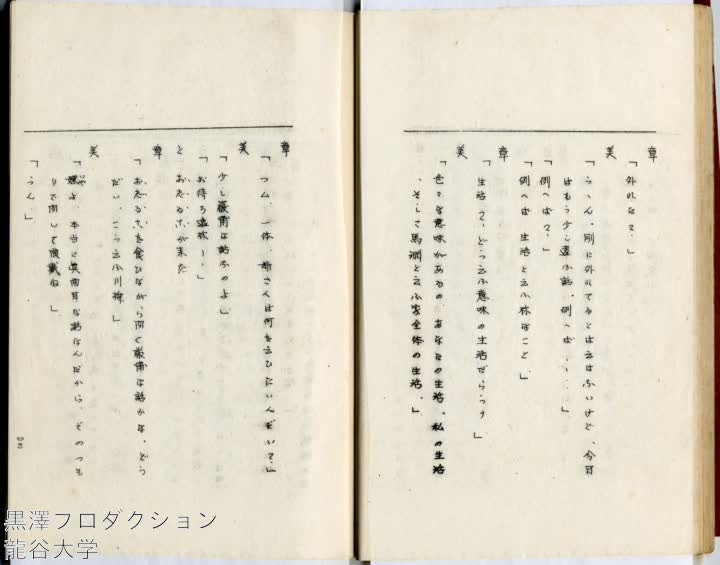 章「外れて？」
美「うゝん、別に外れてるとは云はないけど、今日
はもう少し違ふ話、例へば……」
章「例へば？」
美「例へば 生活と云ふ様なこと」
章「生活って、どう云ふ意味の生活だらう？」
美「色々な意味があるの、あなたの生活、私の生活
、そして馬淵と云ふ家全体の生活。」
章「フム、一体、姉さんは何を云ひたいんだい？」
美「少し厳粛な話なのよ」
「お待ち遠さま」
と おたぬきが来た
章「おたぬきを食ひながら聞く厳粛な話かな、どう
だい、こう云ふ川柳」
美「嫌よ、本当に真面目な話なんだから、そのつも
りで聞いて頂戴ね 」
「うん」
黒澤プロダクション
龍谷大学